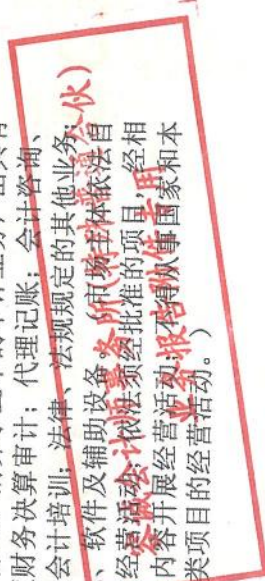 财务决算审计；代理记账；会计咨询、
会计培训；法律、法规规定的其他业务；
、软件及辅助设备。（市场主体依法自
经营活动；依法须经批准的项目，经相
内容开展经营活动；不得从事国家和本
类项目的经营活动。）
容诚会计师事务所(特殊普通合伙)
业务报告附件专用